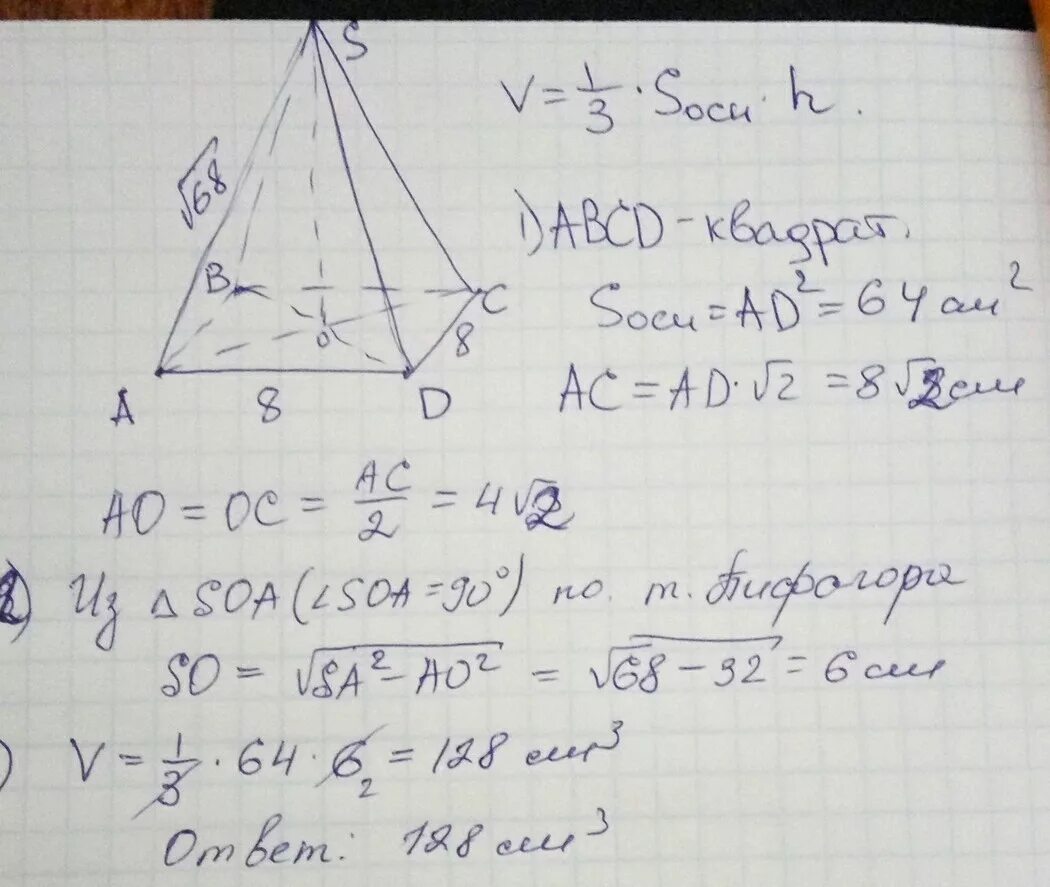 S
V = 1/3 · Sосн · h.
√68
1) ABCD - квадрат.
B
C
Sосн = AD² = 64 см²
O
8
A
8
D
AC = AD · √2 = 8√2 см
AO = OC = AC/2 = 4√2
2) Из △ SOA (∠SOA = 90°) по т. Пифагора
SO = √(SA² - AO²) = √(68 - 32) = 6 см
) V = 1/3 · 64 · 6 2 = 128 см³
Ответ: 128 см³